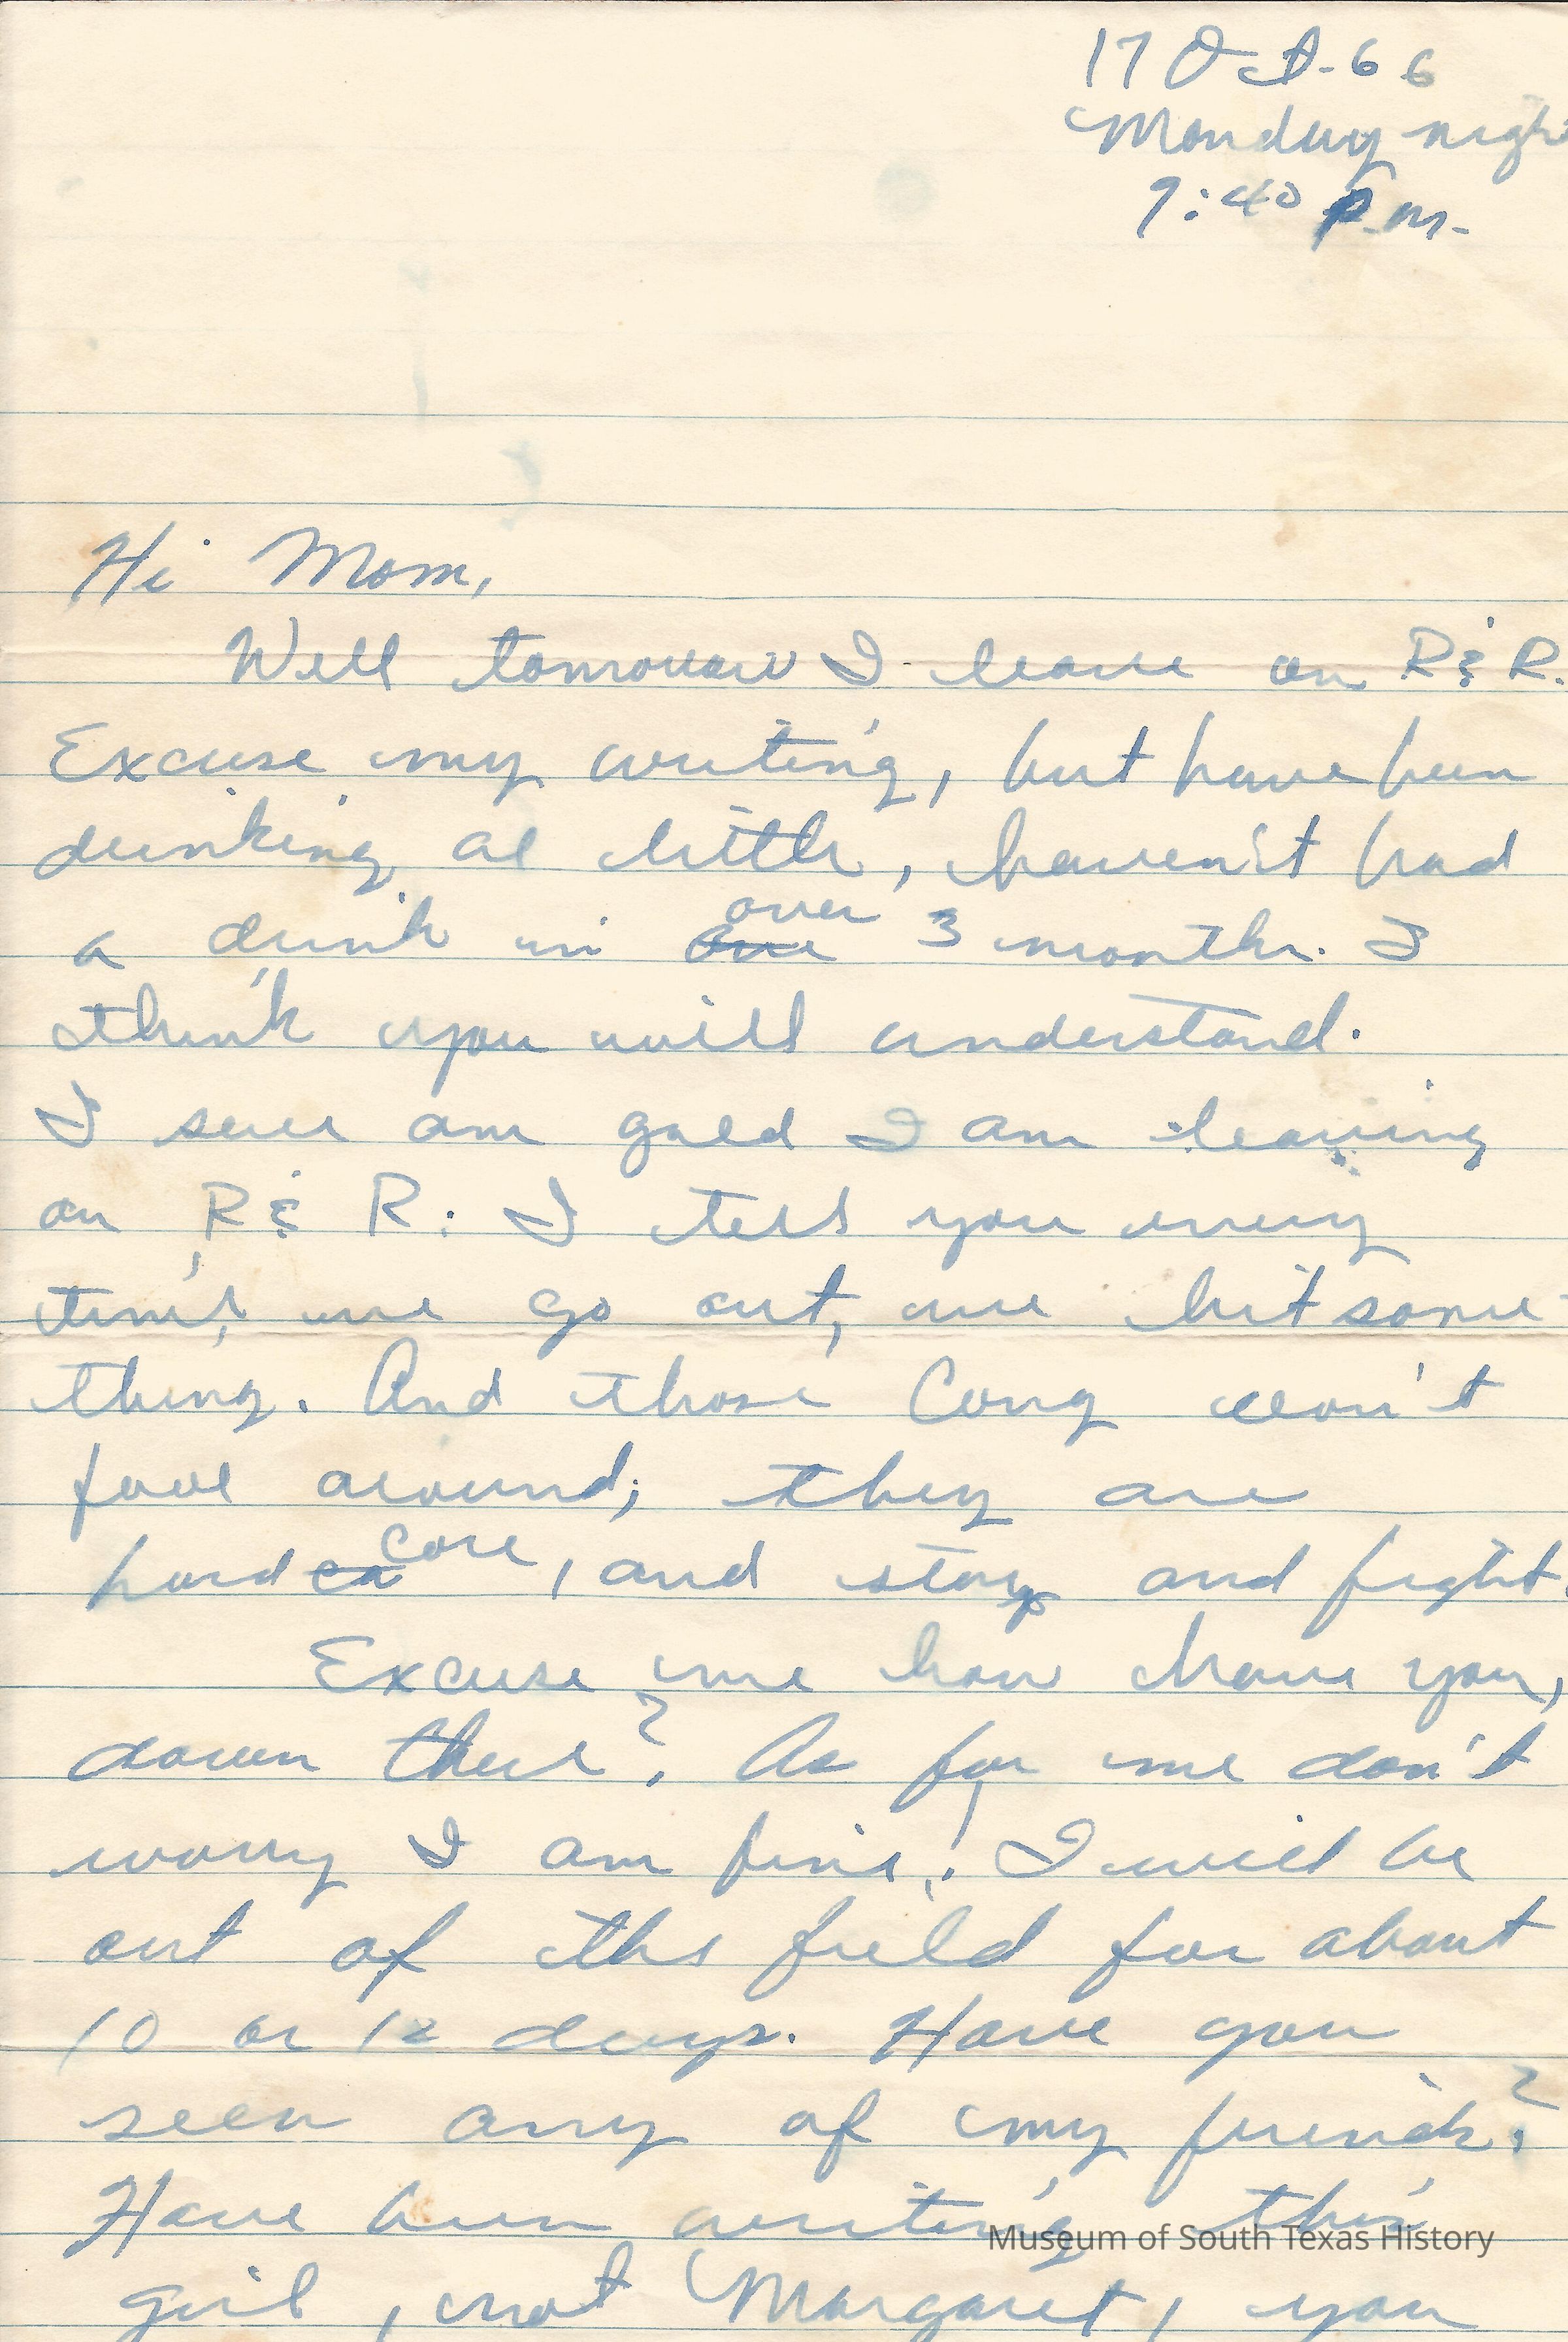 17 Oct-66
Monday nigh
9:40 P.m.
Hi Mom,
Well tomorrow I leave on R & R.
Excuse my writing, but have been
drinking a little, haven't had
a drink in over 3 months. I
think you will understand.
I sure am gald I am leaving
on R & R. I tell you every
time we go out, we hit some-
thing. And those Cong don't
fool around; they are
hard core, and stay and fight.
Excuse me how have you,
down there? As for me don't
worry I am fine! I will be
out of the field for about
10 or 12 days. Have you
seen any of my friends?
Have been writing this
girl, not Margaret, you
Museum of South Texas History